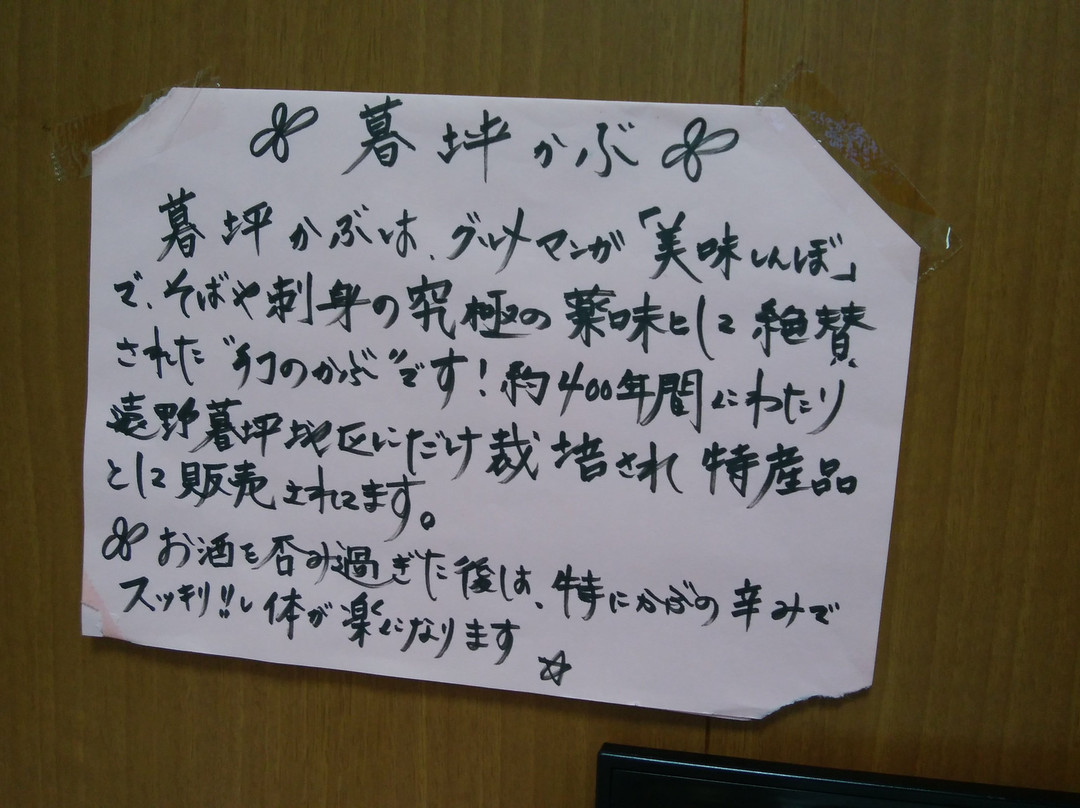 暮坪かぶ
暮坪かぶは、グルメマンガ「美味しんぼ」
で、そばや刺身の究極の薬味として絶賛
された“幻のかぶ”です!約400年間にわたり
遠野暮坪地区にだけ栽培され特産品
として販売されてます。
お酒を呑み過ぎた後は、特にかぶの辛みで
スッキリ!!し体が楽になります☆